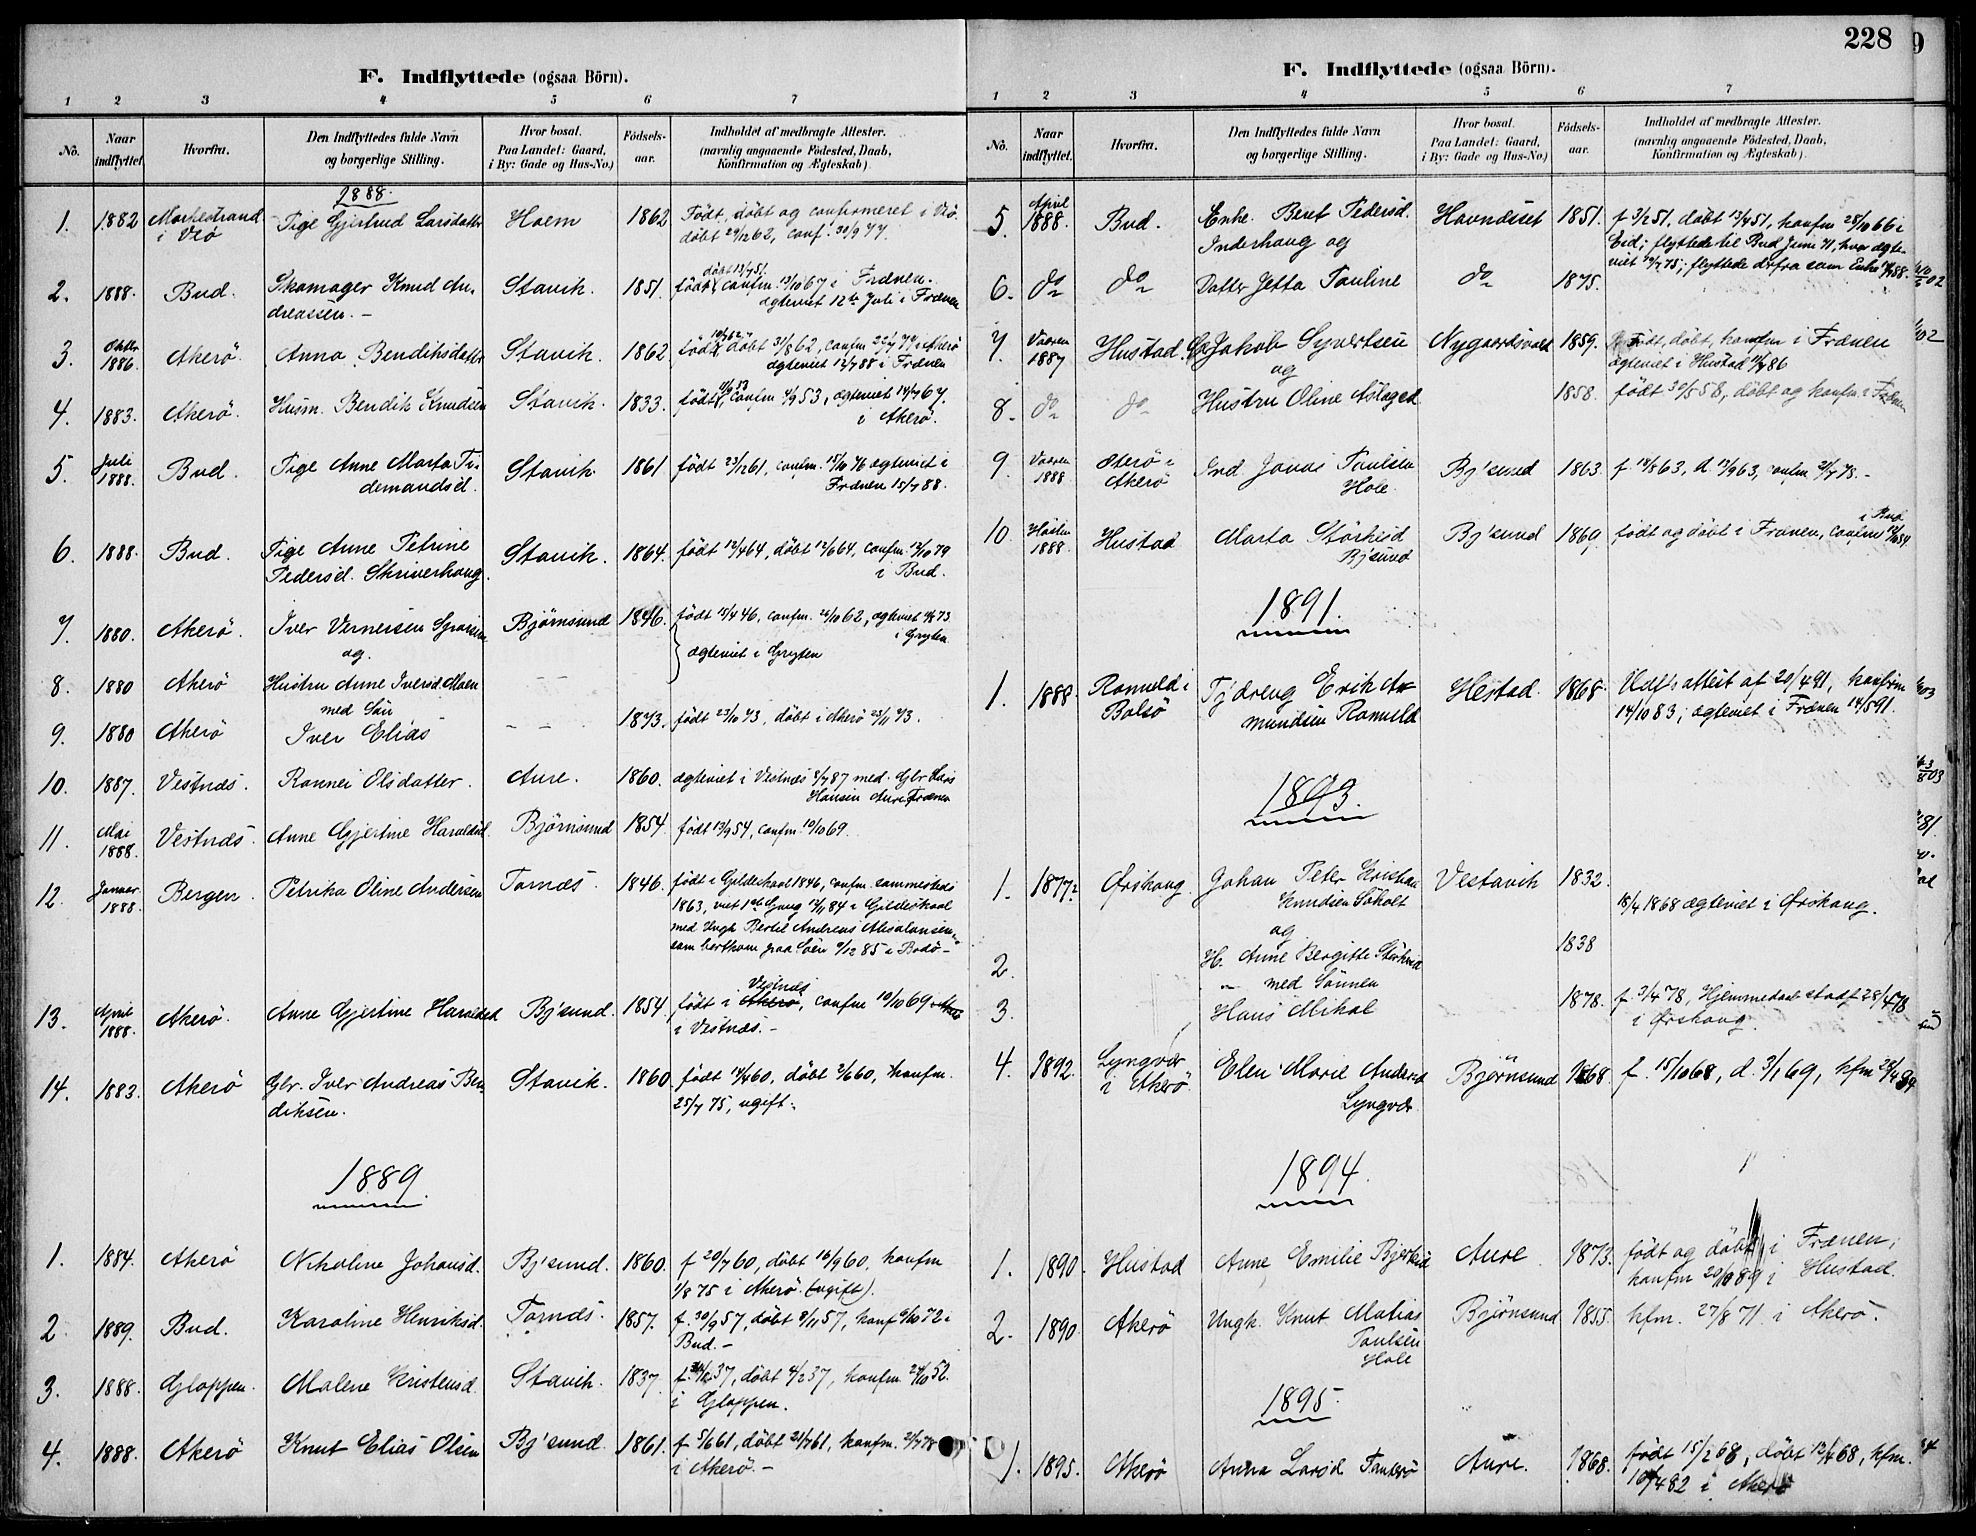 228
F. Indflyttede (ogsaa Börn).
1 2 3 4 5 6 7
No. Naar indflyttet. Hvorfra. Den Indflyttedes fulde Navn og borgerlige Stilling. Hvor bosat. Paa Landet: Gaard, i By: Gade og Hus-No.) Födselsaar. Indholdet af medbragte Attester. (navnlig angaaende Födested, Daab, Konfirmation og Ægteskab).
1888.
1. 1882 i Vrö Pige Gjertrud Larsdatter Hoem 1862 Födt, döbt og confirmeret i Vrö.
döbt 29/12 62, conf. 30/9 77.
2. 1888. Bud. Skomager Knud An- Stavik. 1851. födt, confm. 13/10 67 i Frænen.
dreassen. - ægteviet 12te Juli i Frænen
3. Oktbr 1886. Akerö. Anna Bendiksdatter Stavik. 1862 födt, döbt 31/8 62, confm i Akerö
ægteviet i Frænen
4. 1883. Akerö. Husm. Bendik Knudsen Stavik. 1833. födt, confm 53, ægteviet 67.
i Akerö.
5. Juli 1888. Bud. Pige Anne Marta Ti- Stavik. 1861 födt 23/12 61, confm. 15/10 76 ægteviet i
demandsd. Frænen 15/7 88.
6. 1888. Bud. Pige Anne Petrine Stavik. 1864. födt 12/4 64, döbt 12/6 64, confm. 12/10 79
Pedersd. Skriverhaug. i Bud.
7. 1880. Akerö. Iver Vernersen Björnsund 1846. födt 15/4 46, confm. 26/10 62, ægteviet 73
og. i Gryten
ægteviet i Gryten
8. 1880 Akerö Hustru Anne Iversd. Moen
med Sön
9. 1880 Akerö Iver Elias 1873. födt 23/10 73, döbt i Akerö 23/11 73.
10. 1887. Vestnæs. Rannei Olsdatter. Aure. 1860. ægteviet i Vestnæs 87 med. Gbr Lars
Hansen Aure Frænen
11. Mai 1888. Vestnæs. Anne Gjertine Haraldsd. Björnsund 1854. födt 13/9 54, confm. 10/10 69.
12. Januar 1888. Bergen. Petrika Oline Andersen Tornæs. 1846. födt i Gildeskaal 1846, confm. sammesteds
1863, viet 1ste Gang 84 i Gildeskaal
med Ungk. Bertel Andreas Absalonsen
som bortkom paa Söen 9/12 85 i Bodö -
13. April 1888. Akerö. Anne Gjertine Haraldsd. Bj'sund. 1854. födt i Akerö Vestnæs, confm 10/10 69
i Vestnæs. -
14. 1883. Akerö Gbr. Iver Andreas Ben- Stavik. 1860. födt 60, döbt 60, konfm.
diksen. 25/7 75, ugift.
1889.
1. 1884. Akerö Nikoline Johansd. Bj'sund. 1860. f 20/7 60, döbt 16/9 60, konfm
75 i Akerö (ugift).
2. 1889. Bud. Karoline Henriksd. Tornæs. 1857. f. 30/9 57, döbt 8/11 57, konf 6/10 72 i
Bud. -
3. 1888. Gloppen. Malene Kristensd. Stavik. 1837. f. 37, döbt 4/2 37, konfm. 24/10 52.
i Gloppen.
4. 1888. Akerö Knut Elias Olsen Bj'sund. 1861. f 5/6 61, döbt 21/7 61, konfm. 78
i Akerö. -
F. Indflyttede (ogsaa Börn).
1 2 3 4 5 6 7
No. Naar indflyttet. Hvorfra. Den Indflyttedes fulde Navn og borgerlige Stilling. Hvor bosat. Paa Landet: Gaard, i By: Gade og Hus-No.) Födselsaar. Indholdet af medbragte Attester. (navnlig angaaende Födested, Daab, Konfirmation og Ægteskab).
5. April 1888. Bud. Enke. Beret Pedersd. Havnæset 1851. f 3/2 51, döbt 13/4 51, konfm 28/10 66 i
Inderhaug og Eid; flyttede til Bud Juni 71, hvor ægte-
viet 75; flyttede derfra som Enke 88.
6. do do Datter Jetta Pauline do 1875.
7. Vaaren 1887 Hustad Jakob Syvertsen Nygaardsvald 1859. Födt, döbt, konfm i Frænen
og ægteviet i Hustad 86
8. do do Hustru Oline Aslagsd. 1858. födt 30/5 58, döbt og konfm. i Frænen
9. Vaaren 1888 Oterö i Akerö Ind. Jonas Paulsen Bj'sund 1863. f 63, d 13/9 63, confm 78. -
Hole.
10. Hösten 1888. Hustad Marta Störkisd Bj'sund 1869. födt og döbt i Frænen, confm 84
Bj'sund i Bud
1891.
1. 1888. Romuld i Bolsö Tj.dreng Erik Am Hestad. 1868. Udfl. attest af 20/4 91, konfirm
mundsen Romuld 14/10 83; ægteviet i Frænen 14/5 91.
1893.
1. 1877. Örskoug. Johan Peter Kristian Vestavik 1832.
Knudsen Söholt 18/4 1868 ægteviet i Örskoug.
og
2. H. Anne Bergitte 1838
" med Sönnen
3. Hans Mikal 1878. f. 3/4 78, Hjemmedaab stadf 28/4 78
i Örskoug.
4. 1892. Lyngvær i Akerö Elen Marie Andersd Björnsund 1868. f. 15/10 68, d. 3/1 69, kfm
Lyngvær.
1894.
1. 1890. Hustad Anne Emilie Aure 1873. födt og döbt i Frænen;
konfm 20/10 89 i Hustad.
2. 1890. Akerö Ungk. Knut Matias Björnsund 1855. kfm. 27/8 71 i Akerö.
Paulsen
Hole
1895.
1. 1895. Akerö Anna Larsd Tauterö Aure. 1868. födt 15/2 68, döbt 12/4 68, kfm.
82 i Akerö